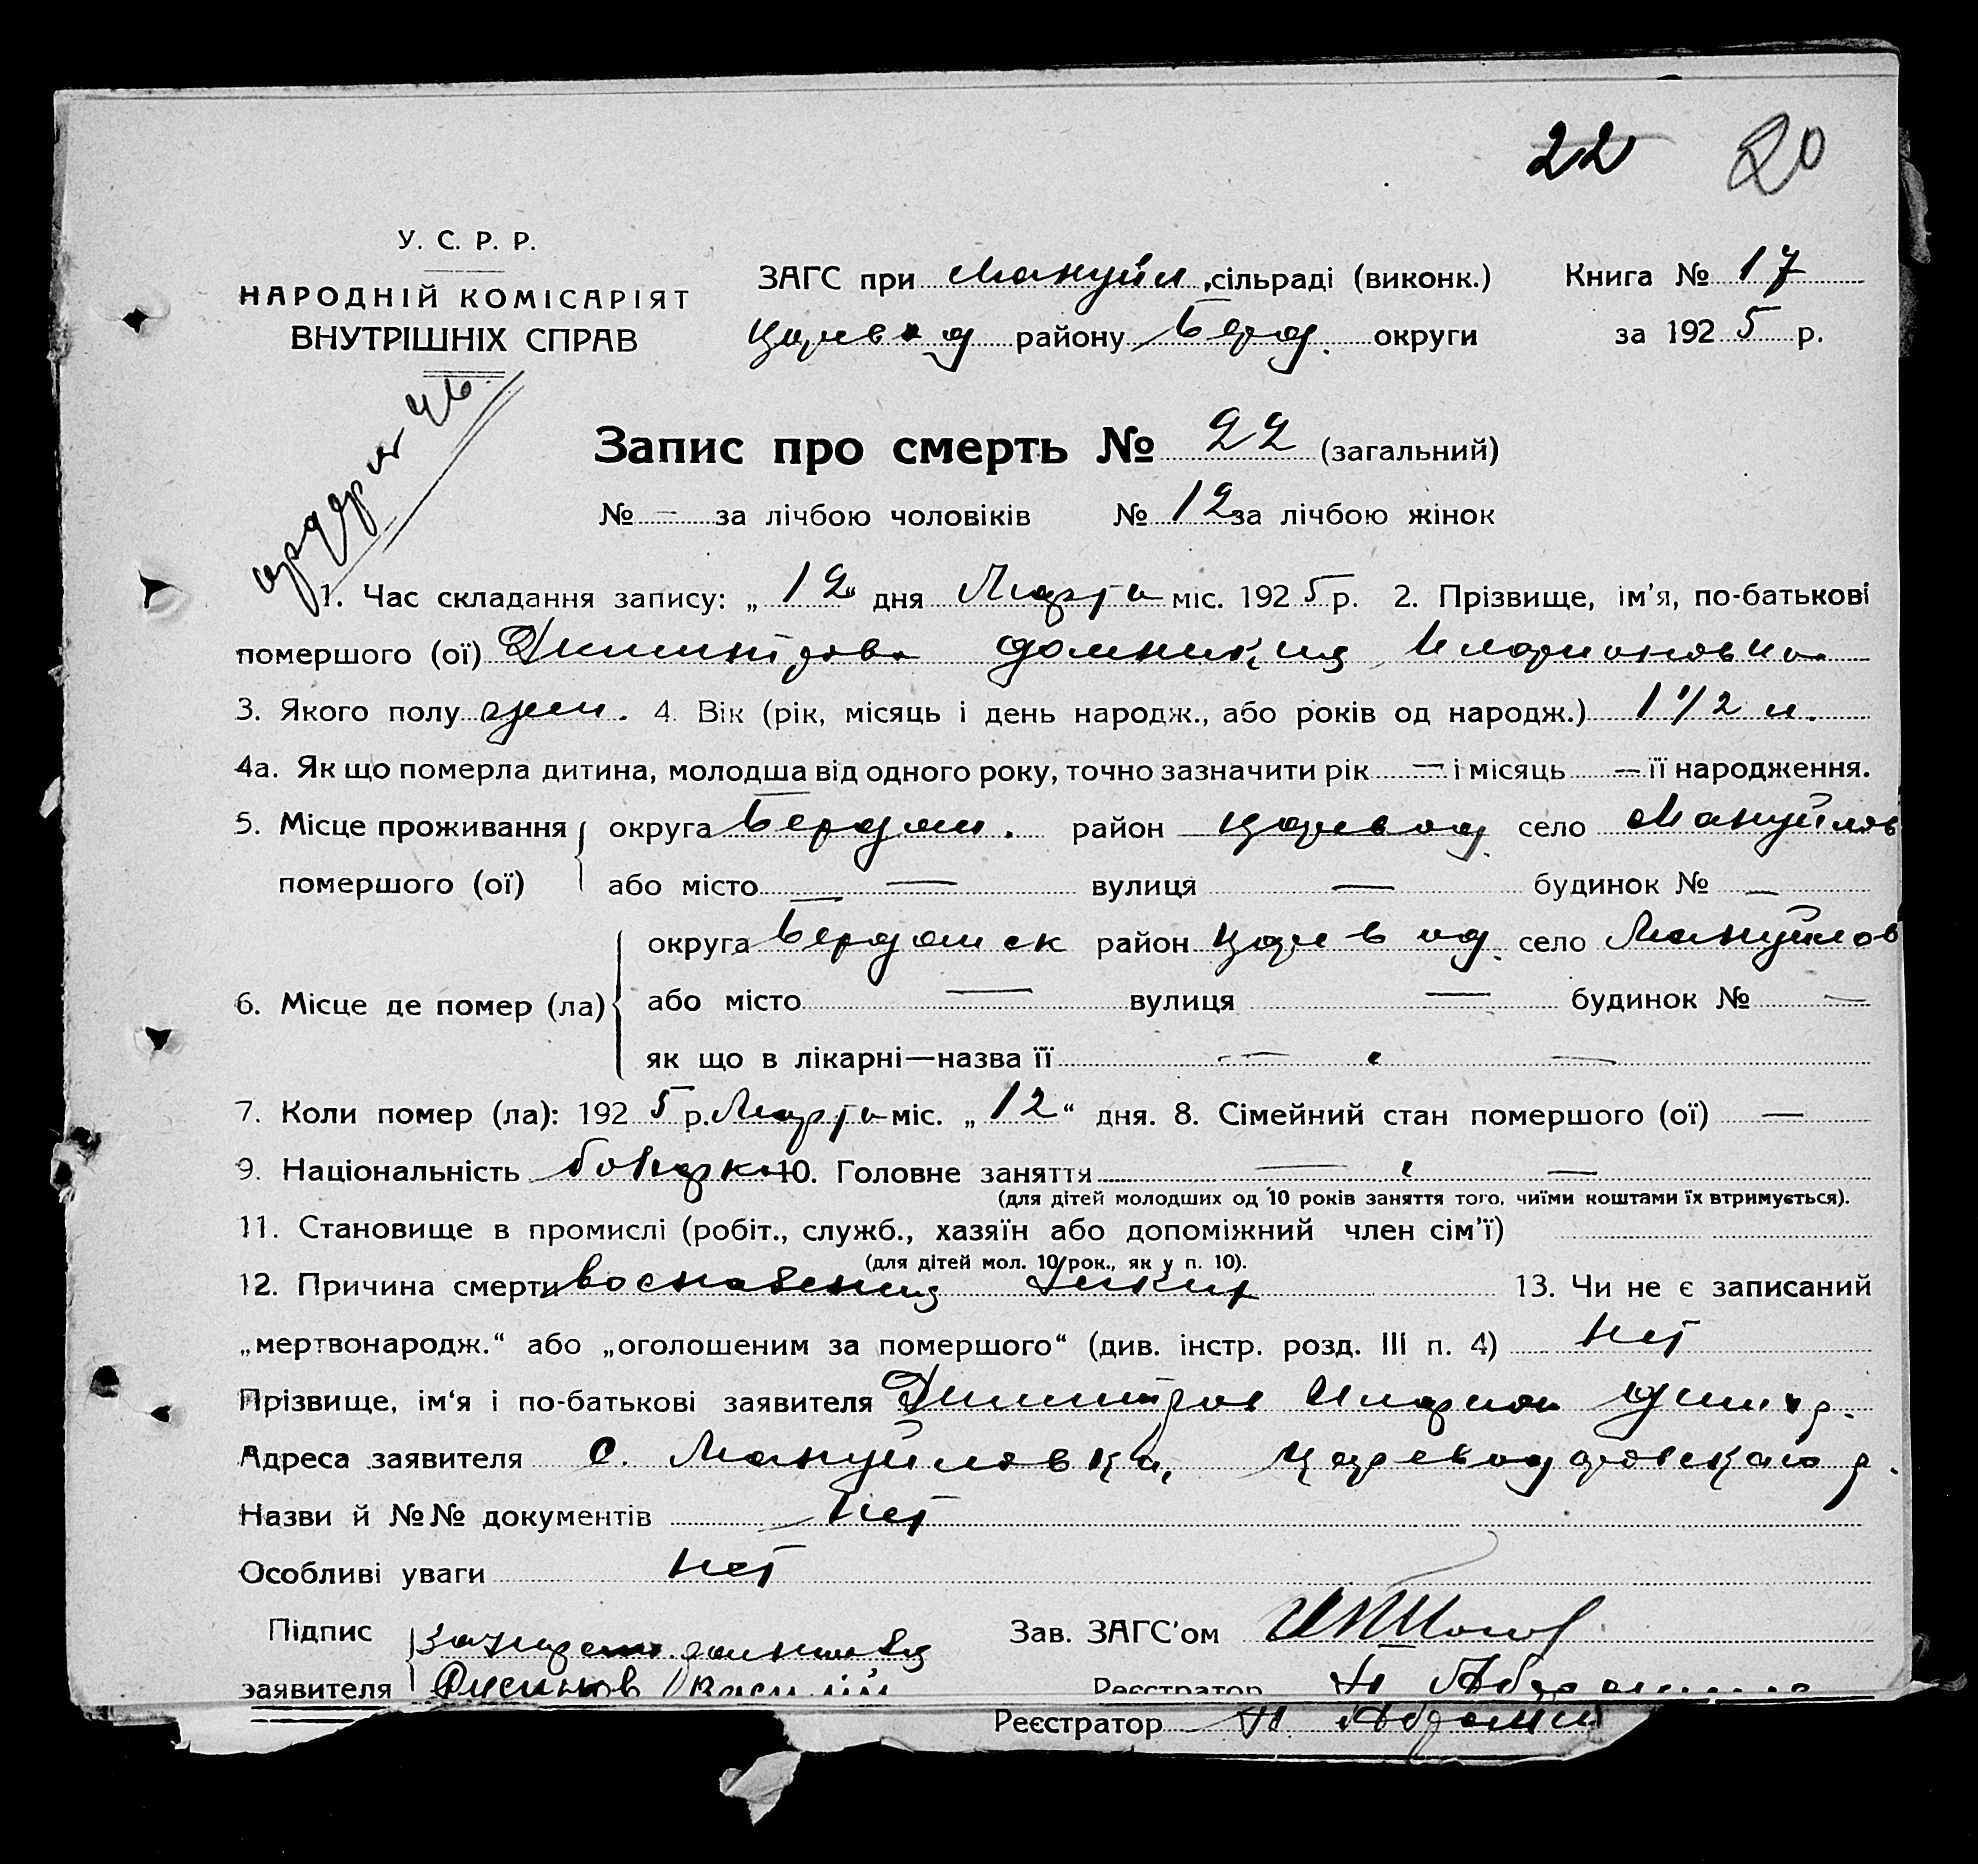 22 20
У. С. Р. Р.
НАРОДНІЙ КОМІСАРІЯТ
ВНУТРІШНІХ СПРАВ
ЗАГС при Мануйл. сільраді (виконк.) Книга № 17
Царевод району Берд. округи за 1925 р.
Запис про смерть № 22 (загальний)
№ — за лічбою чоловіків № 12 за лічбою жінок
1. Час складання запису: „12“ дня Марта міс. 1925 р. 2. Прізвище, ім'я, по-батькові
помершого (ої) Димитрова Домникия Иларионовна
3. Якого полу жен. 4. Вік (рік, місяць і день народж., або років од народж.) 1 1/2 м.
4а. Як що померла дитина, молодша від одного року, точно зазначити рік — і місяць — її народження.
5. Місце проживання округа Бердян. район Царевод. село Мануйлов
помершого (ої) або місто — вулиця — будинок № —
округа Бердянск район Царевод. село Мануйлов
6. Місце де помер (ла) або місто — вулиця — будинок № —
як що в лікарні—назва її — —
7. Коли помер (ла): 1925 р. Марта міс. „12“ дня. 8. Сімейний стан помершого (ої) —
9. Національність болгарка 10. Головне заняття — —
(для дітей молодших од 10 років заняття того, чиїми коштами їх втримується).
11. Становище в промислі (робіт., служб., хазяїн або допоміжний член сім'ї)
(для дітей мол. 10 рок., як у п. 10).
12. Причина смерти воспаление 13. Чи не є записаний
„мертвонародж.“ або „оголошеним за помершого“ (див. інстр. розд. III п. 4) нет
Прізвище, ім'я і по-батькові заявителя Димитров Иларион
Адреса заявителя с. Мануйловка, Царевод р.
Назви й №№ документів нет
Особливі уваги нет
Підпис Зав. ЗАГС'ом
заявителя Русинов Василий Реєстратор Н Абрами
Реєстратор Н Абрами